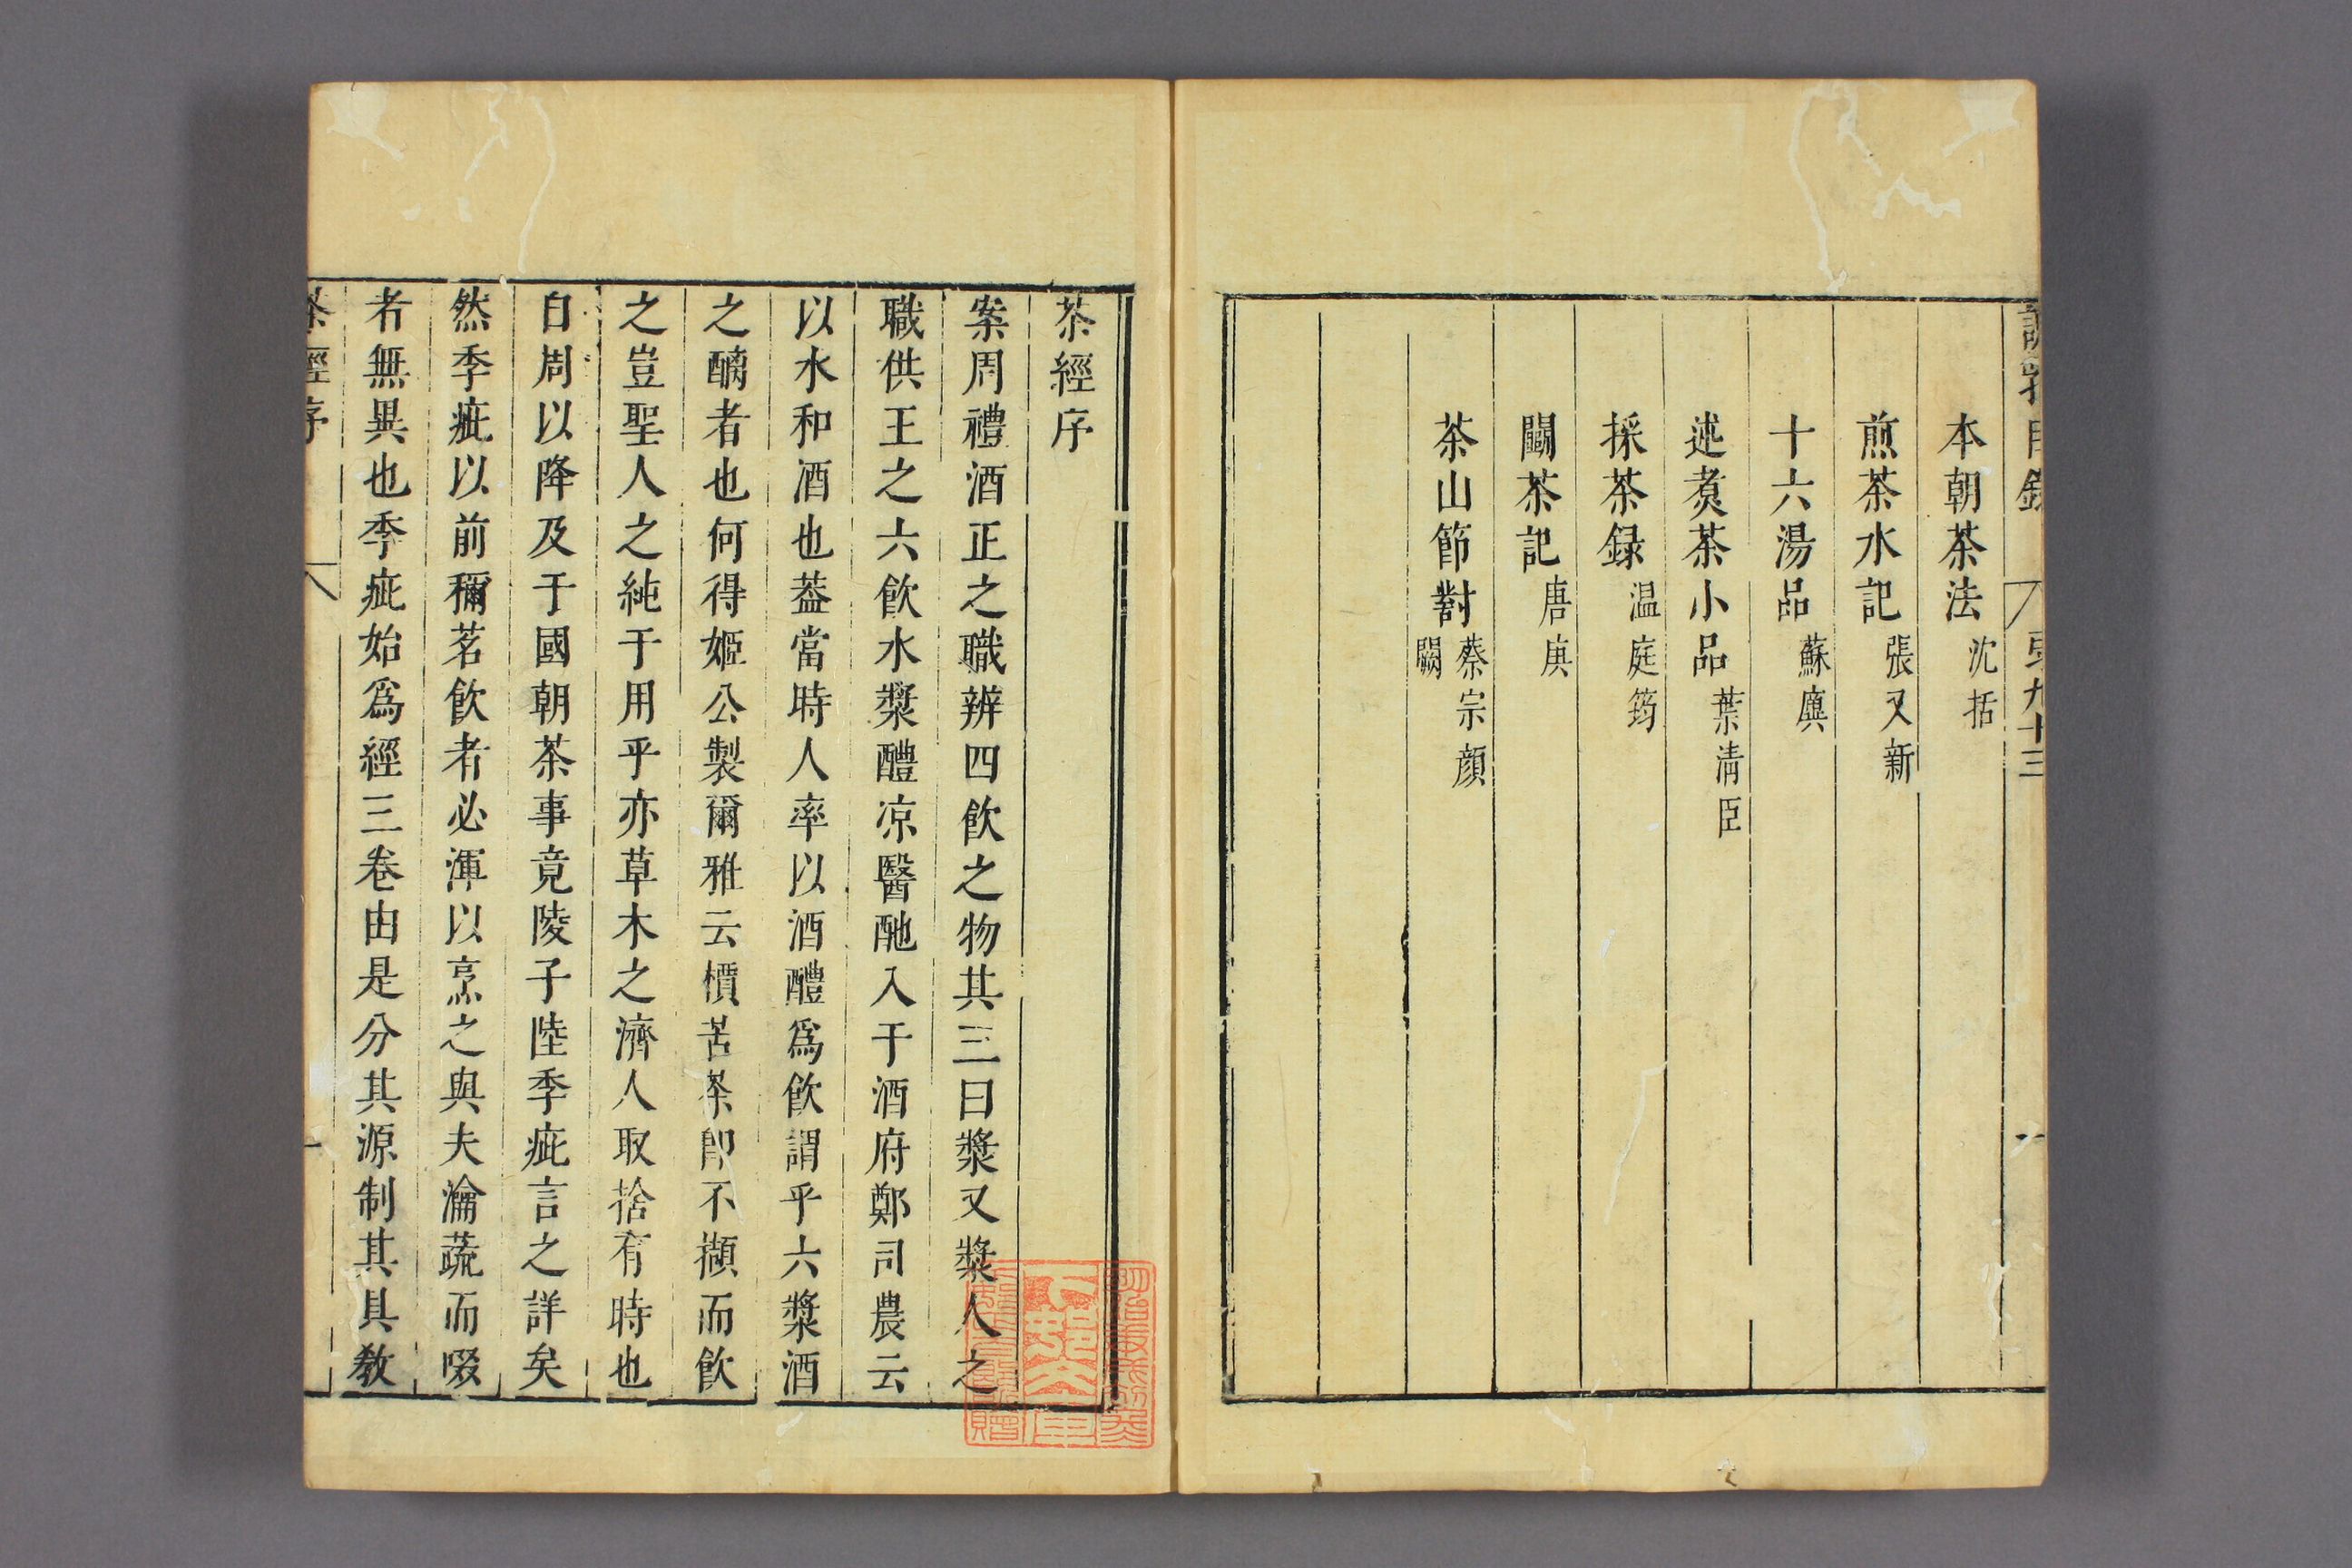 本朝茶法 沈括
煎茶水記 張又新
十六湯品 蘇廙
述煑茶小品 葉清臣
採茶録 温庭筠
鬬茶記 唐庚
茶山節對 蔡宗顔 闕
茶經序
案周禮酒正之職辨四飲之物其三曰漿又漿人之
職供王之六飲水漿醴凉醫酏入于酒府鄭司農云
以水和酒也葢當時人率以酒醴爲飲謂乎六漿酒
之醨者也何得姬公製爾雅云檟苦茶卽不擷而飲
之豈聖人之純于用乎亦草木之濟人取捨有時也
自周以降及于國朝茶事竟陵子陸季疵言之詳矣
然季疵以前稱茗飲者必渾以烹之與夫瀹蔬而啜
者無異也季疵始爲經三卷由是分其源制其具敎
茶經序